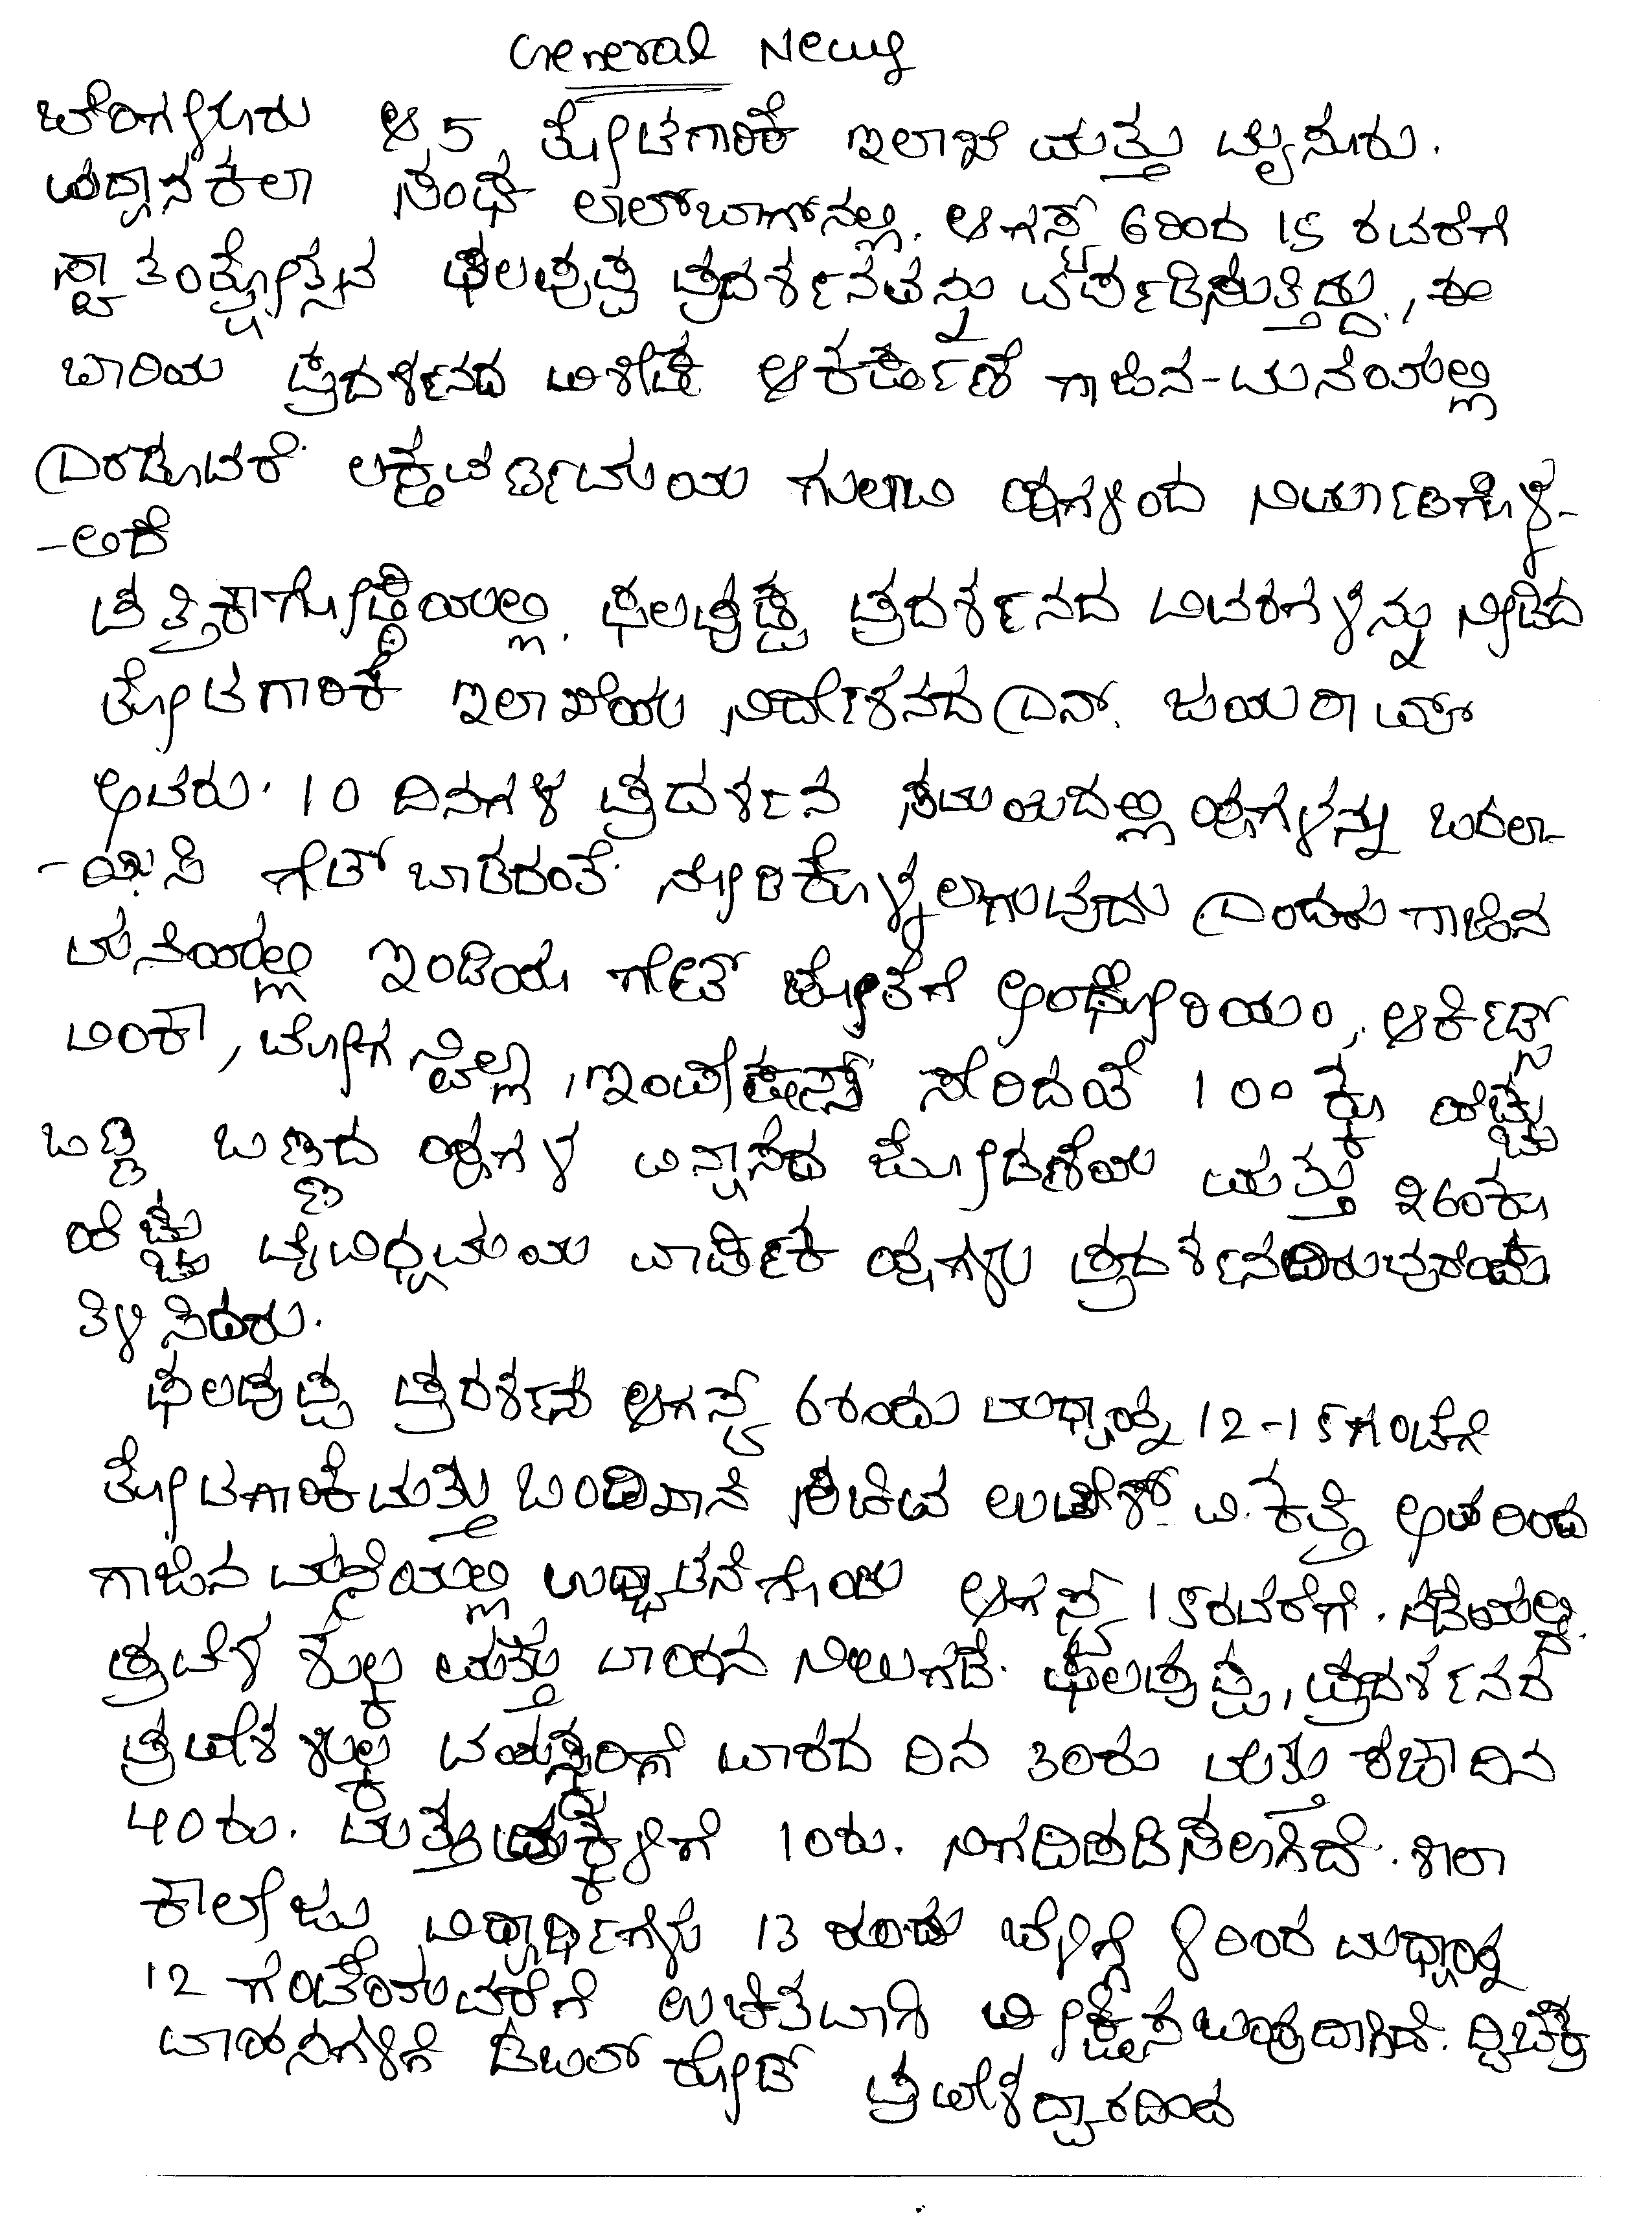 General News
ಬೆಂಗಳೂರು ಆ.5 ತೋಟಗಾರಿಕೆ ಇಲಾಖೆ ಮತ್ತು ಮೈಸೂರು.
ಉದ್ಯಾನಕಲಾ ಸಂಘ ಲಾಲ್‌ಬಾಗ್‌ನಲ್ಲಿ. ಆಗಸ್ಟ್ 6ರಿಂದ 15 ರವರೆಗೆ
ಸ್ವಾತಂತ್ರ್ಯೋತ್ಸವ ಫಲಪುಷ್ಪ ಪ್ರದರ್ಶನವನ್ನು ಏರ್ಪಡಿಸುತ್ತಿದ್ದು, ಈ
ಬಾರಿಯ ಪ್ರದರ್ಶನದ ವಿಶೇಷ ಆಕರ್ಷಣೆ ಗಾಜಿನ-ಮನೆಯಲ್ಲಿ
ಎರಡೂವರೆ ಲಕ್ಷ ವರ್ಣಮಯ ಗುಲಾಬಿ ಹೂಗಳಿಂದ ನಿರ್ಮಾಣಗೊಳ್ಳ-
-ಲಿದೆ
ಪತ್ರಿಕಾಗೋಷ್ಠಿಯಲ್ಲಿ. ಫಲಪುಷ್ಪ ಪ್ರದರ್ಶನದ ವಿವರಗಳನ್ನು ನೀಡಿದ
ತೋಟಗಾರಿಕೆ ಇಲಾಖೆಯ ನಿರ್ದೇಶನದ ಎನ್. ಜಯರಾಮ್
ಅವರು. 10 ದಿನಗಳ ಪ್ರದರ್ಶನ ಸಮಯದಲ್ಲಿ ಹೂಗಳನ್ನು ಬದಲಾ-
-ಯಿಸಿ ಗೇಟ್ ಬಾಡದಂತೆ ನೋಡಿಕೊಳ್ಳಲಾಗುವುದು ಎಂದರು ಗಾಜಿನ
ಮನೆಯಲ್ಲಿ ಇಂಡಿಯ ಗೇಟ್ ಜೊತೆಗೆ ಅಂಥೋರಿಯಂ, ಆರ್ಕಿಡ್ಸ್
ವಿಂಕಾ, ಬೋಗನ್ವಿಲ್ಲಾ, ಇಂಪೇಷನ್ಸ್ ಸೇರಿದಂತೆ 100 ಕ್ಕೂ ಹೆಚ್ಚು
ಬಣ್ಣ ಬಣ್ಣದ ಹೂಗಳ ವಿನ್ಯಾಸದ ಜೋಡಣೆಯ ಮತ್ತು 260ಕ್ಕೂ
ಹೆಚ್ಚು ವೈವಿಧ್ಯಮಯ ವಾರ್ಷಿಕ ಹೂಗಳು ಪ್ರದರ್ಶನದಲ್ಲಿರುವುದೆಂದು
ತಿಳಿಸಿದರು.
ಫಲಪುಷ್ಪ ಪ್ರದರ್ಶನ ಆಗಸ್ಟ್ 6ರಂದು ಮಧ್ಯಾಹ್ನ 12-15ಗಂಟೆಗೆ
ತೋಟಗಾರಿಕೆ ಮತ್ತು ಬಂದಿಖಾನೆ ಸಚಿವ ಉಮೇಶ್ ವಿ. ಕತ್ತಿ ಅವರಿಂದ
ಗಾಜಿನ ಮನೆಯಲ್ಲಿ ಉದ್ಘಾಟನೆಗೊಂಡು ಆಗಸ್ಟ್ 15ರವರೆಗೆ. ನಡೆಯಲಿದೆ.
ಪ್ರವೇಶ ಶುಲ್ಕ ಮತ್ತು ವಾಹನ ನಿಲುಗಡೆ. ಫಲಪುಷ್ಪ, ಪ್ರದರ್ಶನದ
ಪ್ರವೇಶ ಶುಲ್ಕ ವಯಸ್ಕರಿಗೆ ವಾರದ ದಿನ 30ರು ಮತ್ತು ರಜಾ ದಿನ
40ರು. ಮತ್ತು ಮಕ್ಕಳಿಗೆ 10ರು. ನಿಗದಿಪಡಿಸಲಾಗಿದೆ. ಶಾಲಾ
ಕಾಲೇಜು ವಿದ್ಯಾರ್ಥಿಗಳು 13 ರಂದು ಬೆಳಿಗ್ಗೆ 8ರಿಂದ ಮಧ್ಯಾಹ್ನ
12 ಗಂಟೆಯವರೆಗೆ ಉಚಿತವಾಗಿ ವೀಕ್ಷಿಸಬಹುದಾಗಿದೆ. ದ್ವಿಚಕ್ರ
ವಾಹನಗಳಿಗೆ ಡಬಲ್ ರೋಡ್ ಪ್ರವೇಶದ್ವಾರದಿಂದ